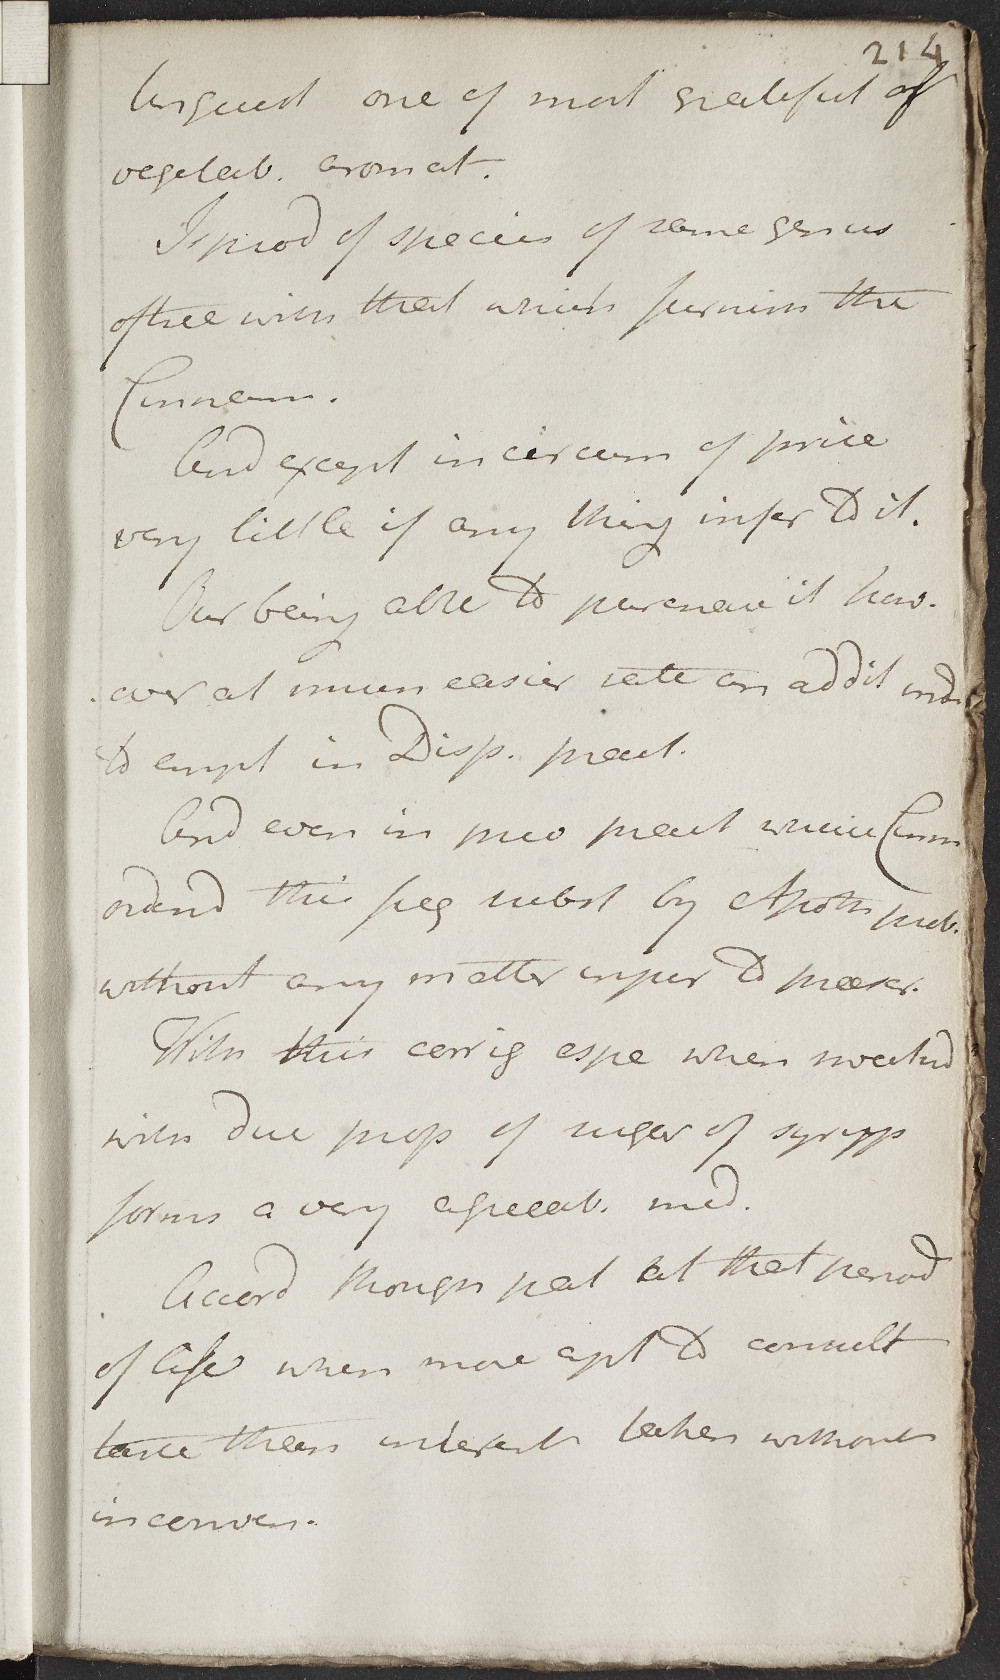 214
Unquest one of most grateful of
vegetab. aromat.
Is prod of species of same genus
of tree with that which furnish the
Cinnam.
And except in circum of price
very little if any thing infer to it.
Our being able to purchase it how-
ever at much easier rate an addit ind
to empl in Disp. pract.
And even in priv pract where Cinn
ordered this freq subst by Apoth
without any matter to
With this corrig espe when sweetned
with due prop of sugar of syrupp
forms a very agreeab. med.
Accord though pat at that period
of life when more apt to consult
taste than interest taken without
inconven.